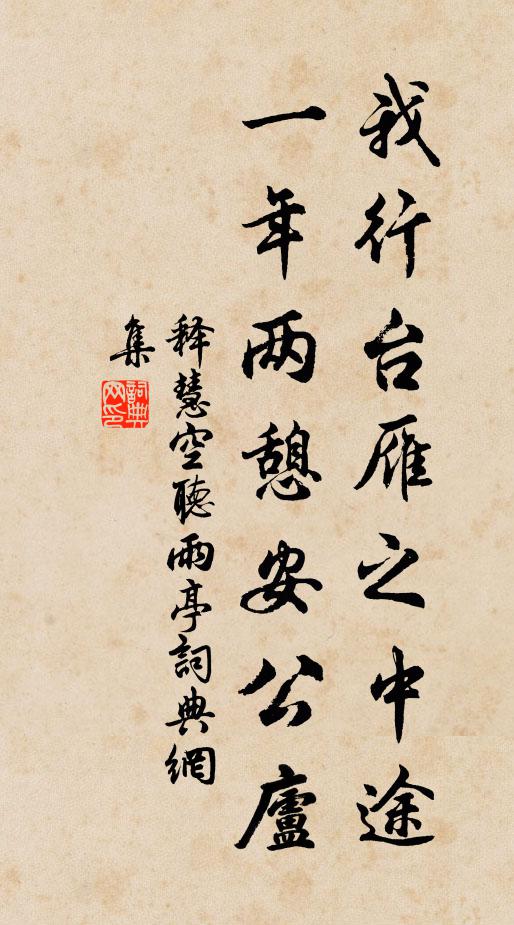 我行台雁之中途
一年两憩安公廬
释慧空聽雨亭詞典網
集
詞典網印